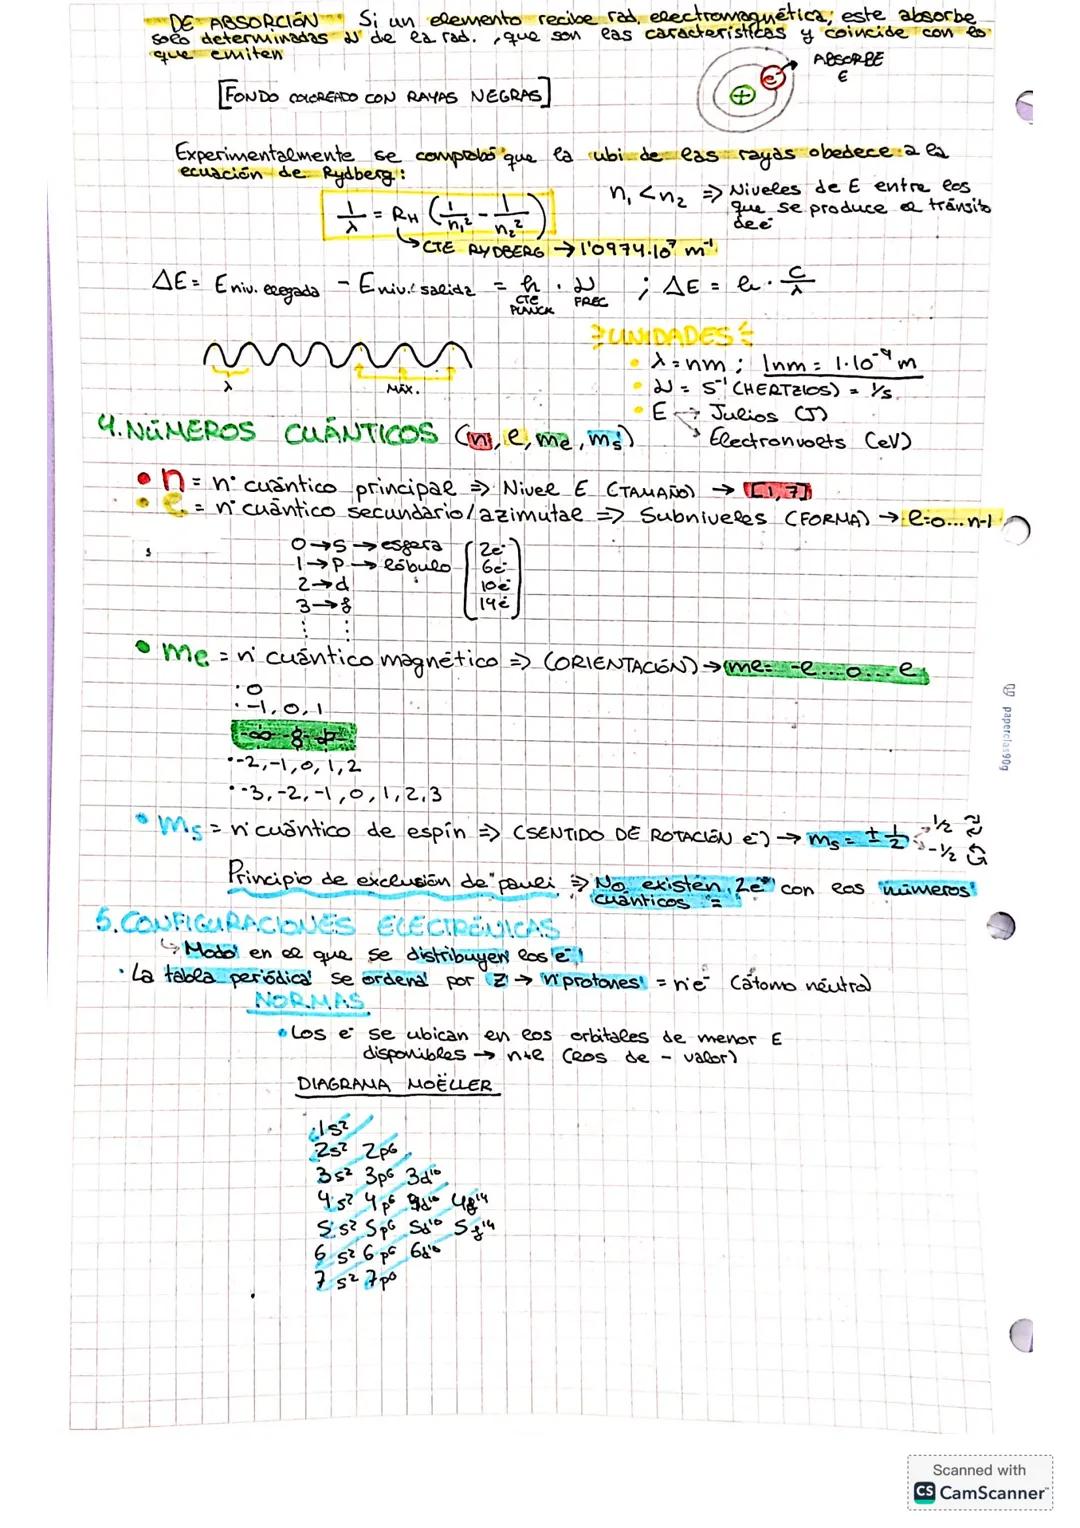 DE ABSORCIÓN Si un elemento recibe rad. electromagnética, este absorbe
solo determinadas ν de la rad., que son las características y coincide con lo
que emiten
ABSORBE
E
e⁻
+
[FONDO COLOREADO CON RAYAS NEGRAS]
Experimentalmente se comprobó que la ubi de las rayas obedece a la
ecuación de Rydberg:
1/λ = R_H (1/n₁² - 1/n₂²)
n₁ < n₂ ⇒ Niveles de E entre los
que se produce el tránsito
de e⁻
CTE RYDBERG → 1'0974·10⁷ m⁻¹
ΔE = E niv. llegada - E niv. salida = h · ν ; ΔE = h · c/λ
CTE PLANCK
FREC
UNIDADES
λ
MÁX.
• λ = nm ; 1nm = 1·10⁻⁹ m
• ν = s⁻¹ (HERTZIOS) = 1/s
• E → Julios (J)
→ Electronvolts (eV)
4. NÚMEROS CUÁNTICOS (n, l, ml, ms)
• n = nº cuántico principal ⇒ Nivel E (TAMAÑO) → [1, 7]
• l = nº cuántico secundario/azimutal ⇒ Subniveles (FORMA) → l=0...n-1
s
0 → s → esfera [2e⁻
1 → p → lóbulo 6e⁻
2 → d 10e⁻
3 → f 14e⁻]
⋮ ⋮
• ml = nº cuántico magnético ⇒ (ORIENTACIÓN) → ml = -l...0...l
· 0
· -1, 0, 1
· -2, -1, 0, 1, 2
· -3, -2, -1, 0, 1, 2, 3
• ms = nº cuántico de espín ⇒ (SENTIDO DE ROTACIÓN e⁻) → ms = ± 1/2
1/2
-1/2
Principio de exclusión de Pauli ⇒ No existen 2e⁻ con los números
cuánticos =
5. CONFIGURACIONES ELECTRÓNICAS
↳ Modo en el que se distribuyen los e⁻
· La tabla periódica se ordena por Z → nº protones = nº e⁻ (átomo neutro)
NORMAS
• Los e⁻ se ubican en los orbitales de menor E
disponibles → n+l (los de - valor)
DIAGRAMA MOËLLER
1s²
2s² 2p⁶
3s² 3p⁶ 3d¹⁰
4s² 4p⁶ 4d¹⁰ 4f¹⁴
5s² 5p⁶ 5d¹⁰ 5f¹⁴
6s² 6p⁶ 6d¹⁰
7s² 7p⁶
paperclas90g
Scanned with
CS CamScanner